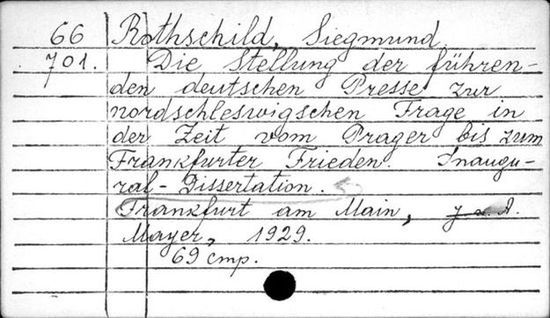 66 Rothschild, Siegmund.
701. Die Stellung der führen-
den deutschen Presse zur
nordschleswigschen Frage in
der Zeit vom Prager bis zum
Frankfurter Frieden. Inaugu-
ral-Dissertation.
Frankfurt am Main, J. u. A.
Mayer, 1929.
69 cmp.